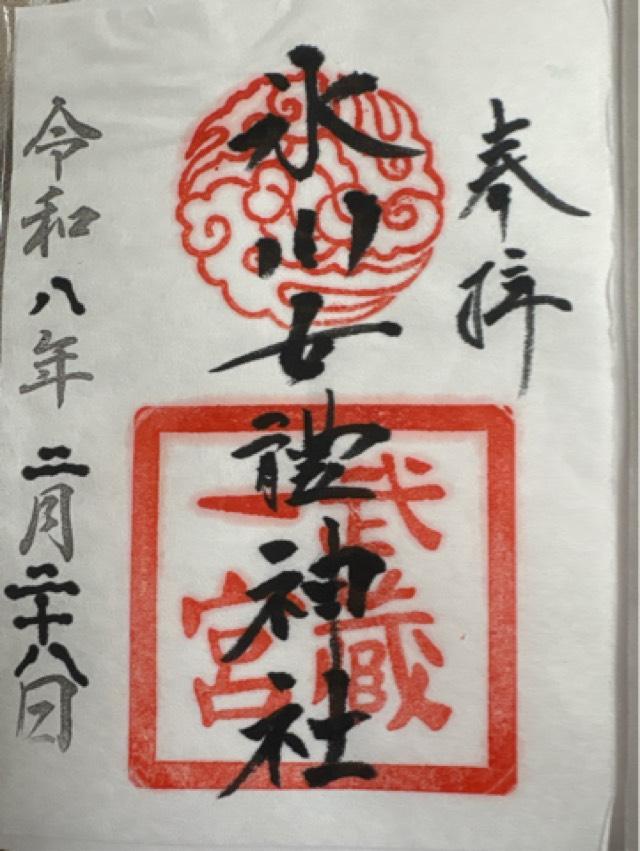 奉拝
氷川女體神社
武蔵
一宮
令和八年二月二十八日